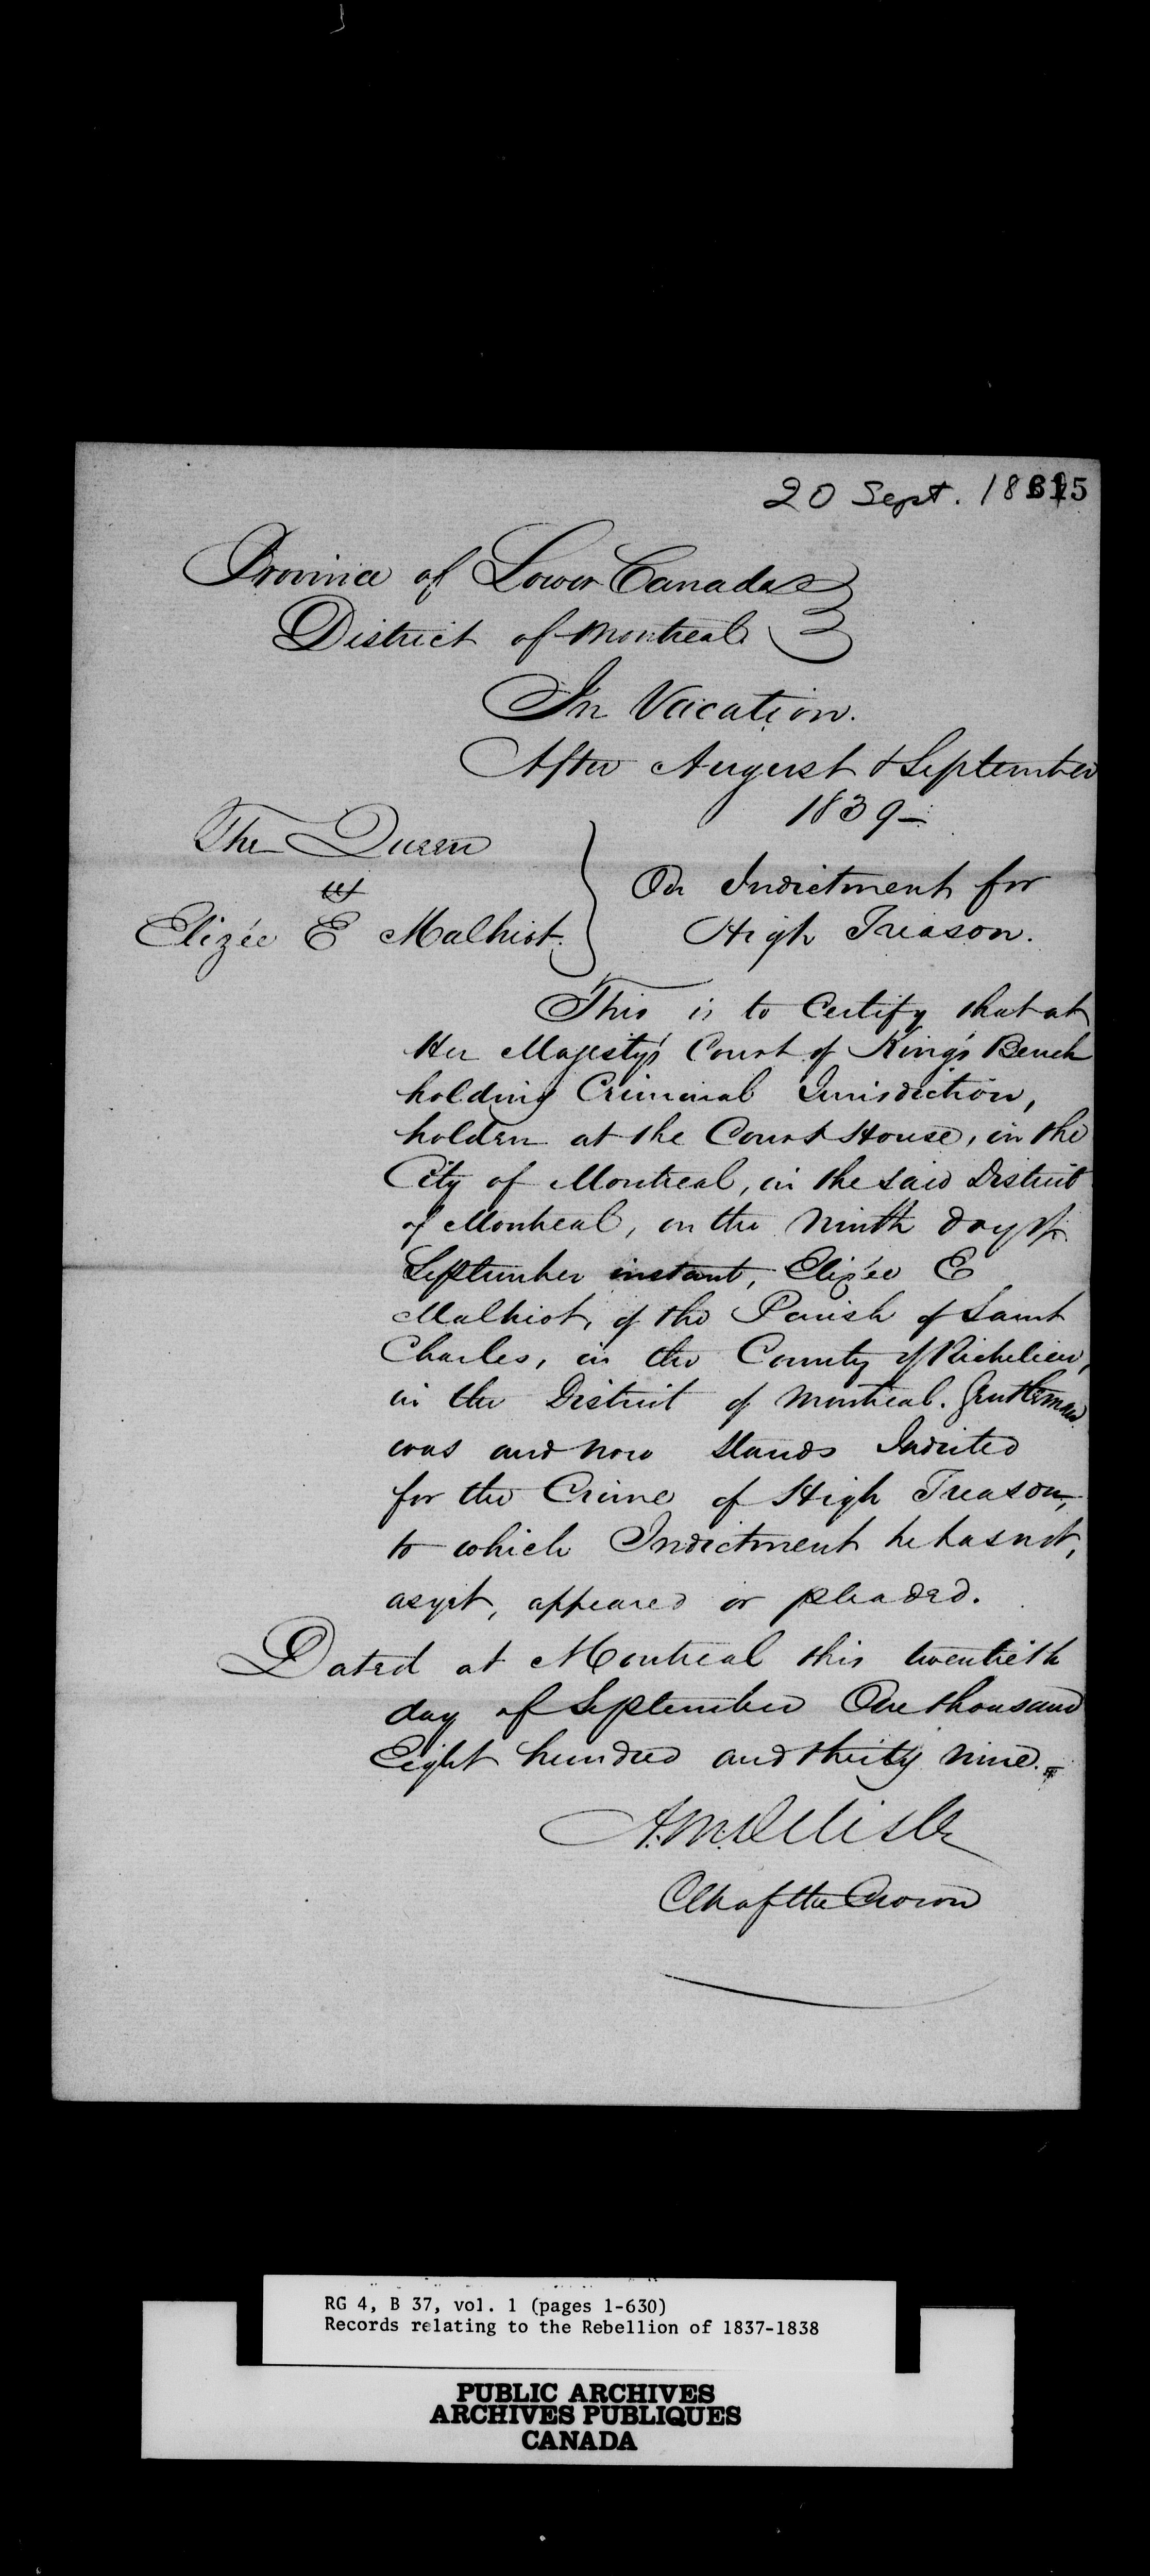 20 Sept. 18 615
Province of Lower Canada
District of Montreal
In Vacation.
After August & September
1839-
The Queen
vs
Elizée E Malhiot.
On Indictment for
High Treason.
This is to Certify that at
Her Majesty's Court of King's Bench
holding Criminal Jurisdiction,
holden at the Court House, in the
City of Montreal, in the said District
of Montreal, on the Ninth day of
September instant, Elizée E
Malhiot, of the Parish of Saint
Charles, in the County of Richelieu,
in the District of Montreal. Gentleman
was and now stands Indicted
for the Crime of High Treason,
to which Indictment he has not,
as yet, appeared or pleaded.
Dated at Montreal this twentieth
day of September One thousand
Eight hundred and thirty nine.
A.M. Delisle
Clk of the Crown
RG 4, B 37, vol. 1 (pages 1-630)
Records relating to the Rebellion of 1837-1838
PUBLIC ARCHIVES
ARCHIVES PUBLIQUES
CANADA